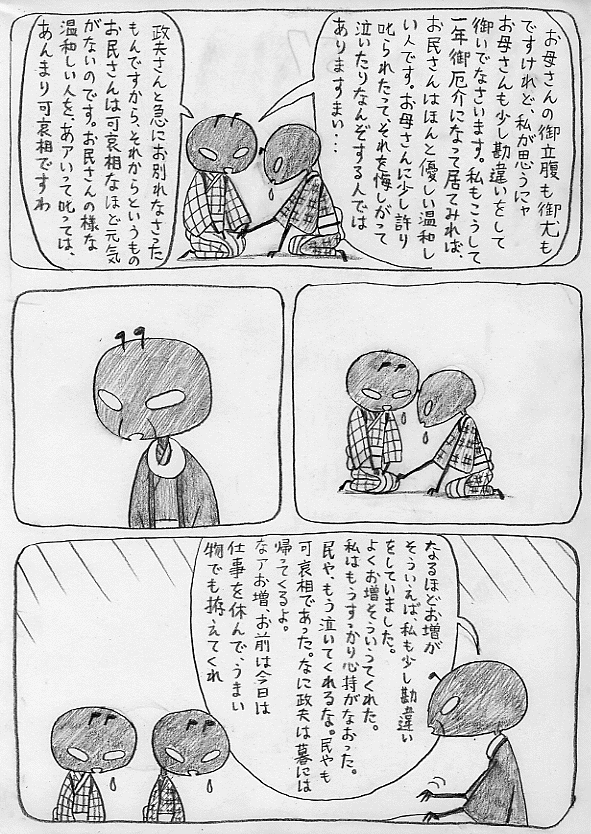 お母さんの御立腹も御尤も
ですけれど、私が思うにゃ
お母さんも少し勘違いをして
御いでなさいます。私もこうして
一年御厄介になって居てみれば、
お民さんはほんと優しい温和し
い人です。お母さんに少し許り
叱られたって、それを悔しがって
泣いたりなんぞする人では
ありますまい…
政夫さんと急にお別れなさった
もんですから、それからというもの
お民さんは可哀相なほど元気
がないのです。お民さんの様な
温和しい人を、あアいって叱っては、
あんまり可哀相ですわ
なるほどお増が
そういえば、私も少し勘違い
をしていました。
よくお増そういうてくれた。
私はもうすっかり心持がなおった。
民や、もう泣いてくれるな。民やも
可哀相であった。なに政夫は暮には
帰ってくるよ。
なアお増、お前は今日は
仕事を休んで、うまい
物でも拵えてくれ